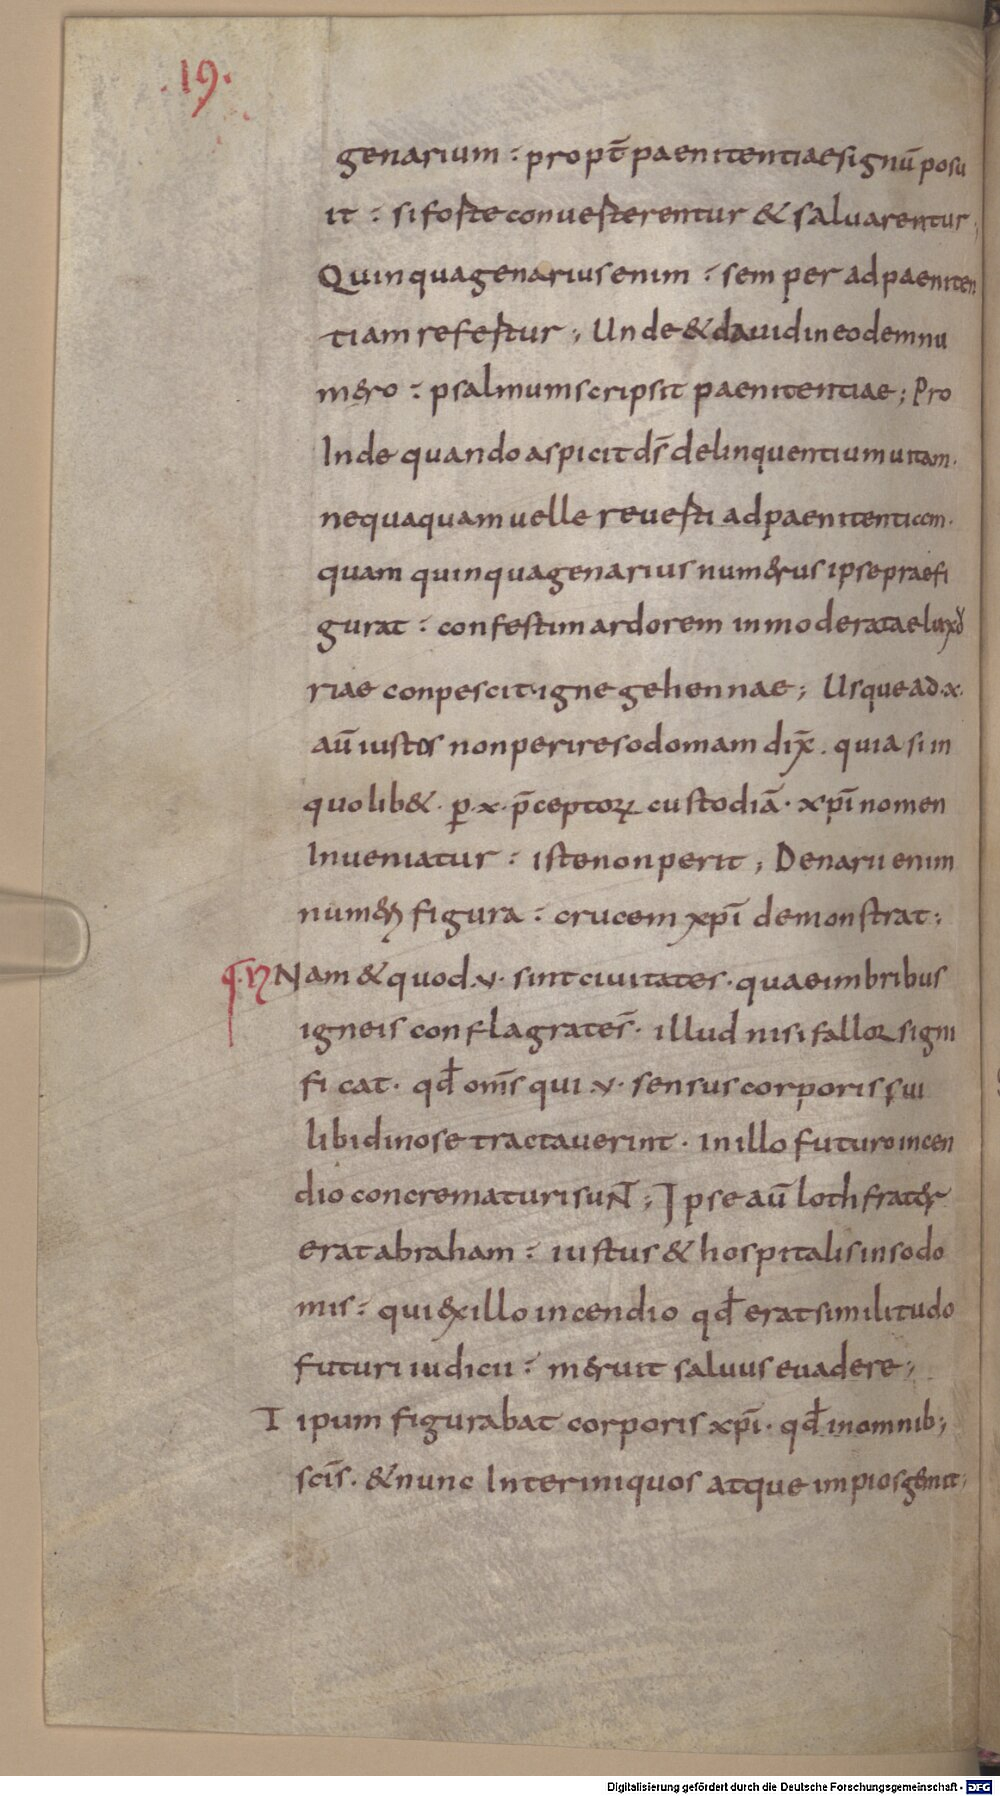 .19.
genarium : propt̄ paenitentiae signū posu
it : si forte conuerterentur & saluarentur ;
Quinquagenarius enim : semper ad paeniten
tiam refertur ; Unde & dauid in eodem nu
mero : psalmum scripsit paenitentiae ; Pro
Inde quando aspicit dš delinquentium uitam .
nequaquam uelle reuerti ad paenitentiam .
quam quinquagenarius numerus ipse praefi
gurat : confestim ardorem inmoderatae luxo
riae conpescit · igne gehennae ; Usque ad · x ·
aū iustos non perire sodomam dix̄ . quia si in
quolib& · ꝑ · x · p̄ceptoꝝ custodiā · xp̄i nomen
Inueniatur : iste non perit ; Denarii enim
numeri figura : crucem xp̄i demonstrat :
Nam & quod · v · sint ciuitates · quae imbribus
igneis conflagratēs · illud nisi fallor signi
ficat · qd̄ om̄s qui · v · sensus corporis sui
libidinose tractauerint · in illo futuro incen
dio concrematuri suNT ; Ipse aū loth frater
erat abraham : iustus & hospitalis in sodo
mis : qui ex illo incendio qd̄ erat similitudo
futuri iudicii : meruit saluus euadere ;
Tipum figurabat corporis xp̄i · qd̄ in omnib;
sc̄is · & nunc Inter iniquos atque impios gemit ;
Digitalisierung gefördert durch die Deutsche Forschungsgemeinschaft - DFG